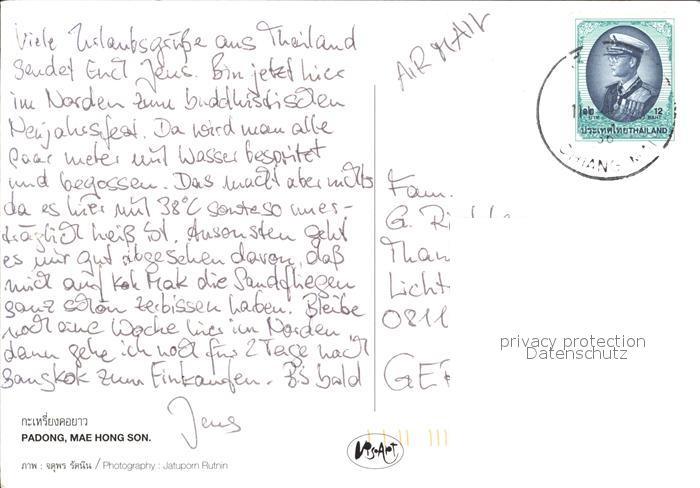 Viele Urlaubsgrüße aus Thailand
sendet Euch Jens. Bin jetzt hier
im Norden zum buddhistischen
Neujahrsfest. Da wird man alle
paar meter mit Wasser bespritzt
und begossen. Das macht aber nichts
da es hier mit 38°C sowieso uner-
träglich heiß ist. Ansonsten geht
es mir gut abgesehen davon, daß
mich auf Koh Mak die Sandfliegen
ganz schön zerbissen haben. Bleibe
noch eine Woche hier im Norden
dann gehe ich noch für 2 Tage nach
Bangkok zum Einkaufen. Bis bald
Jens
กะเหรี่ยงคอยาว
PADONG, MAE HONG SON.
ภาพ : จตุพร รัตนิน / Photography : Jatuporn Rutnin
AIR MAIL
12
ประเทศไทย THAILAND
CHIANG MAI
Fam.
G.
Than
Licht
0811
GER
privacy protection
Datenschutz